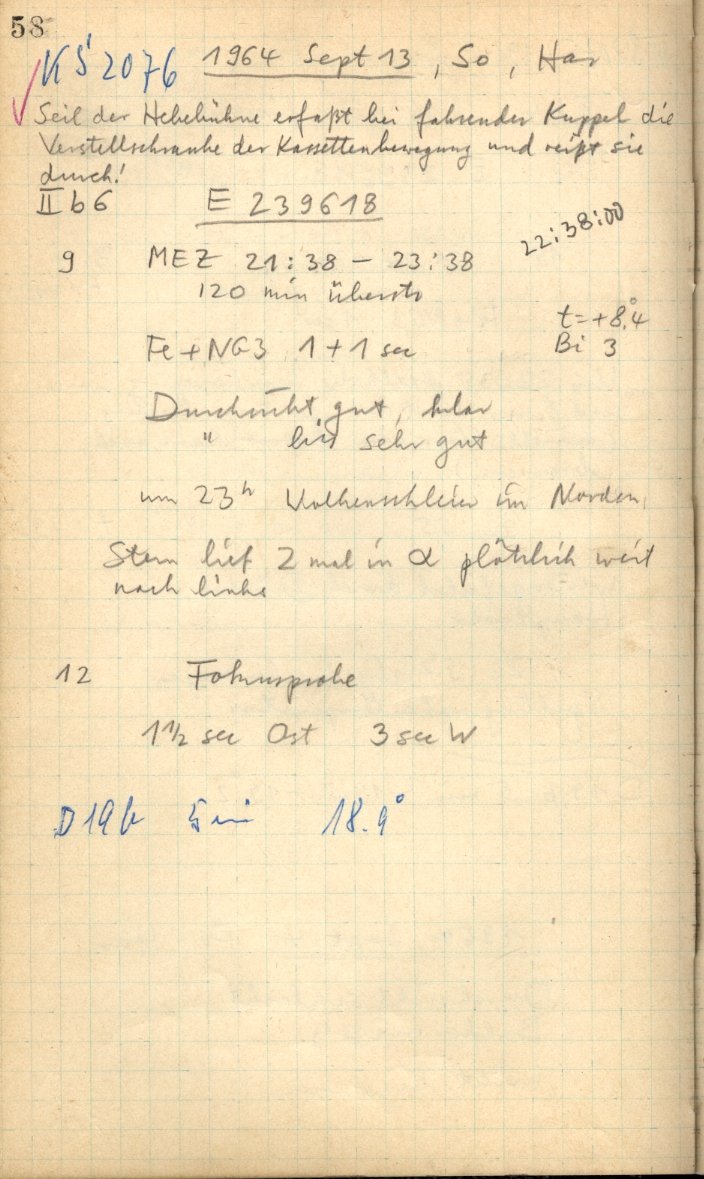 58
KS 2076 1964 Sept 13, So, Har
Seil der Hebebühne erfaßt bei fahrender Kuppel die
Verstellschraube der Kassettenbewegung und reißt sie
durch!
II b 6 E 239618
22:38:00
9 MEZ 21:38 – 23:38
120 min
t=+8°.4
Fe + NG3 1+1 sec Bi 3
Durchsicht gut, klar
" bis sehr gut
um 23h Wolkenschleier im Norden.
Stern lief 2 mal in α plötzlich weit
nach links
12 Fokusprobe
1½ sec Ost 3 sec W
D19b 5 min 18.9°